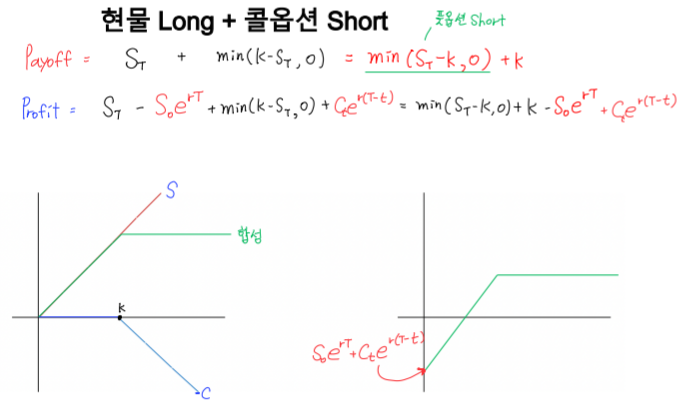 현물 Long + 콜옵션 Short
풋옵션 Short
Payoff = S_T + min(k-S_T, 0) = min(S_T-k, 0) + k
Profit = S_T - S₀e^{rT} + min(k-S_T, 0) + C_t e^{r(T-t)} = min(S_T-k, 0) + k - S₀e^{rT} + C_t e^{r(T-t)}
S
합성
k
S₀e^{rT} + C_t e^{r(T-t)}
C